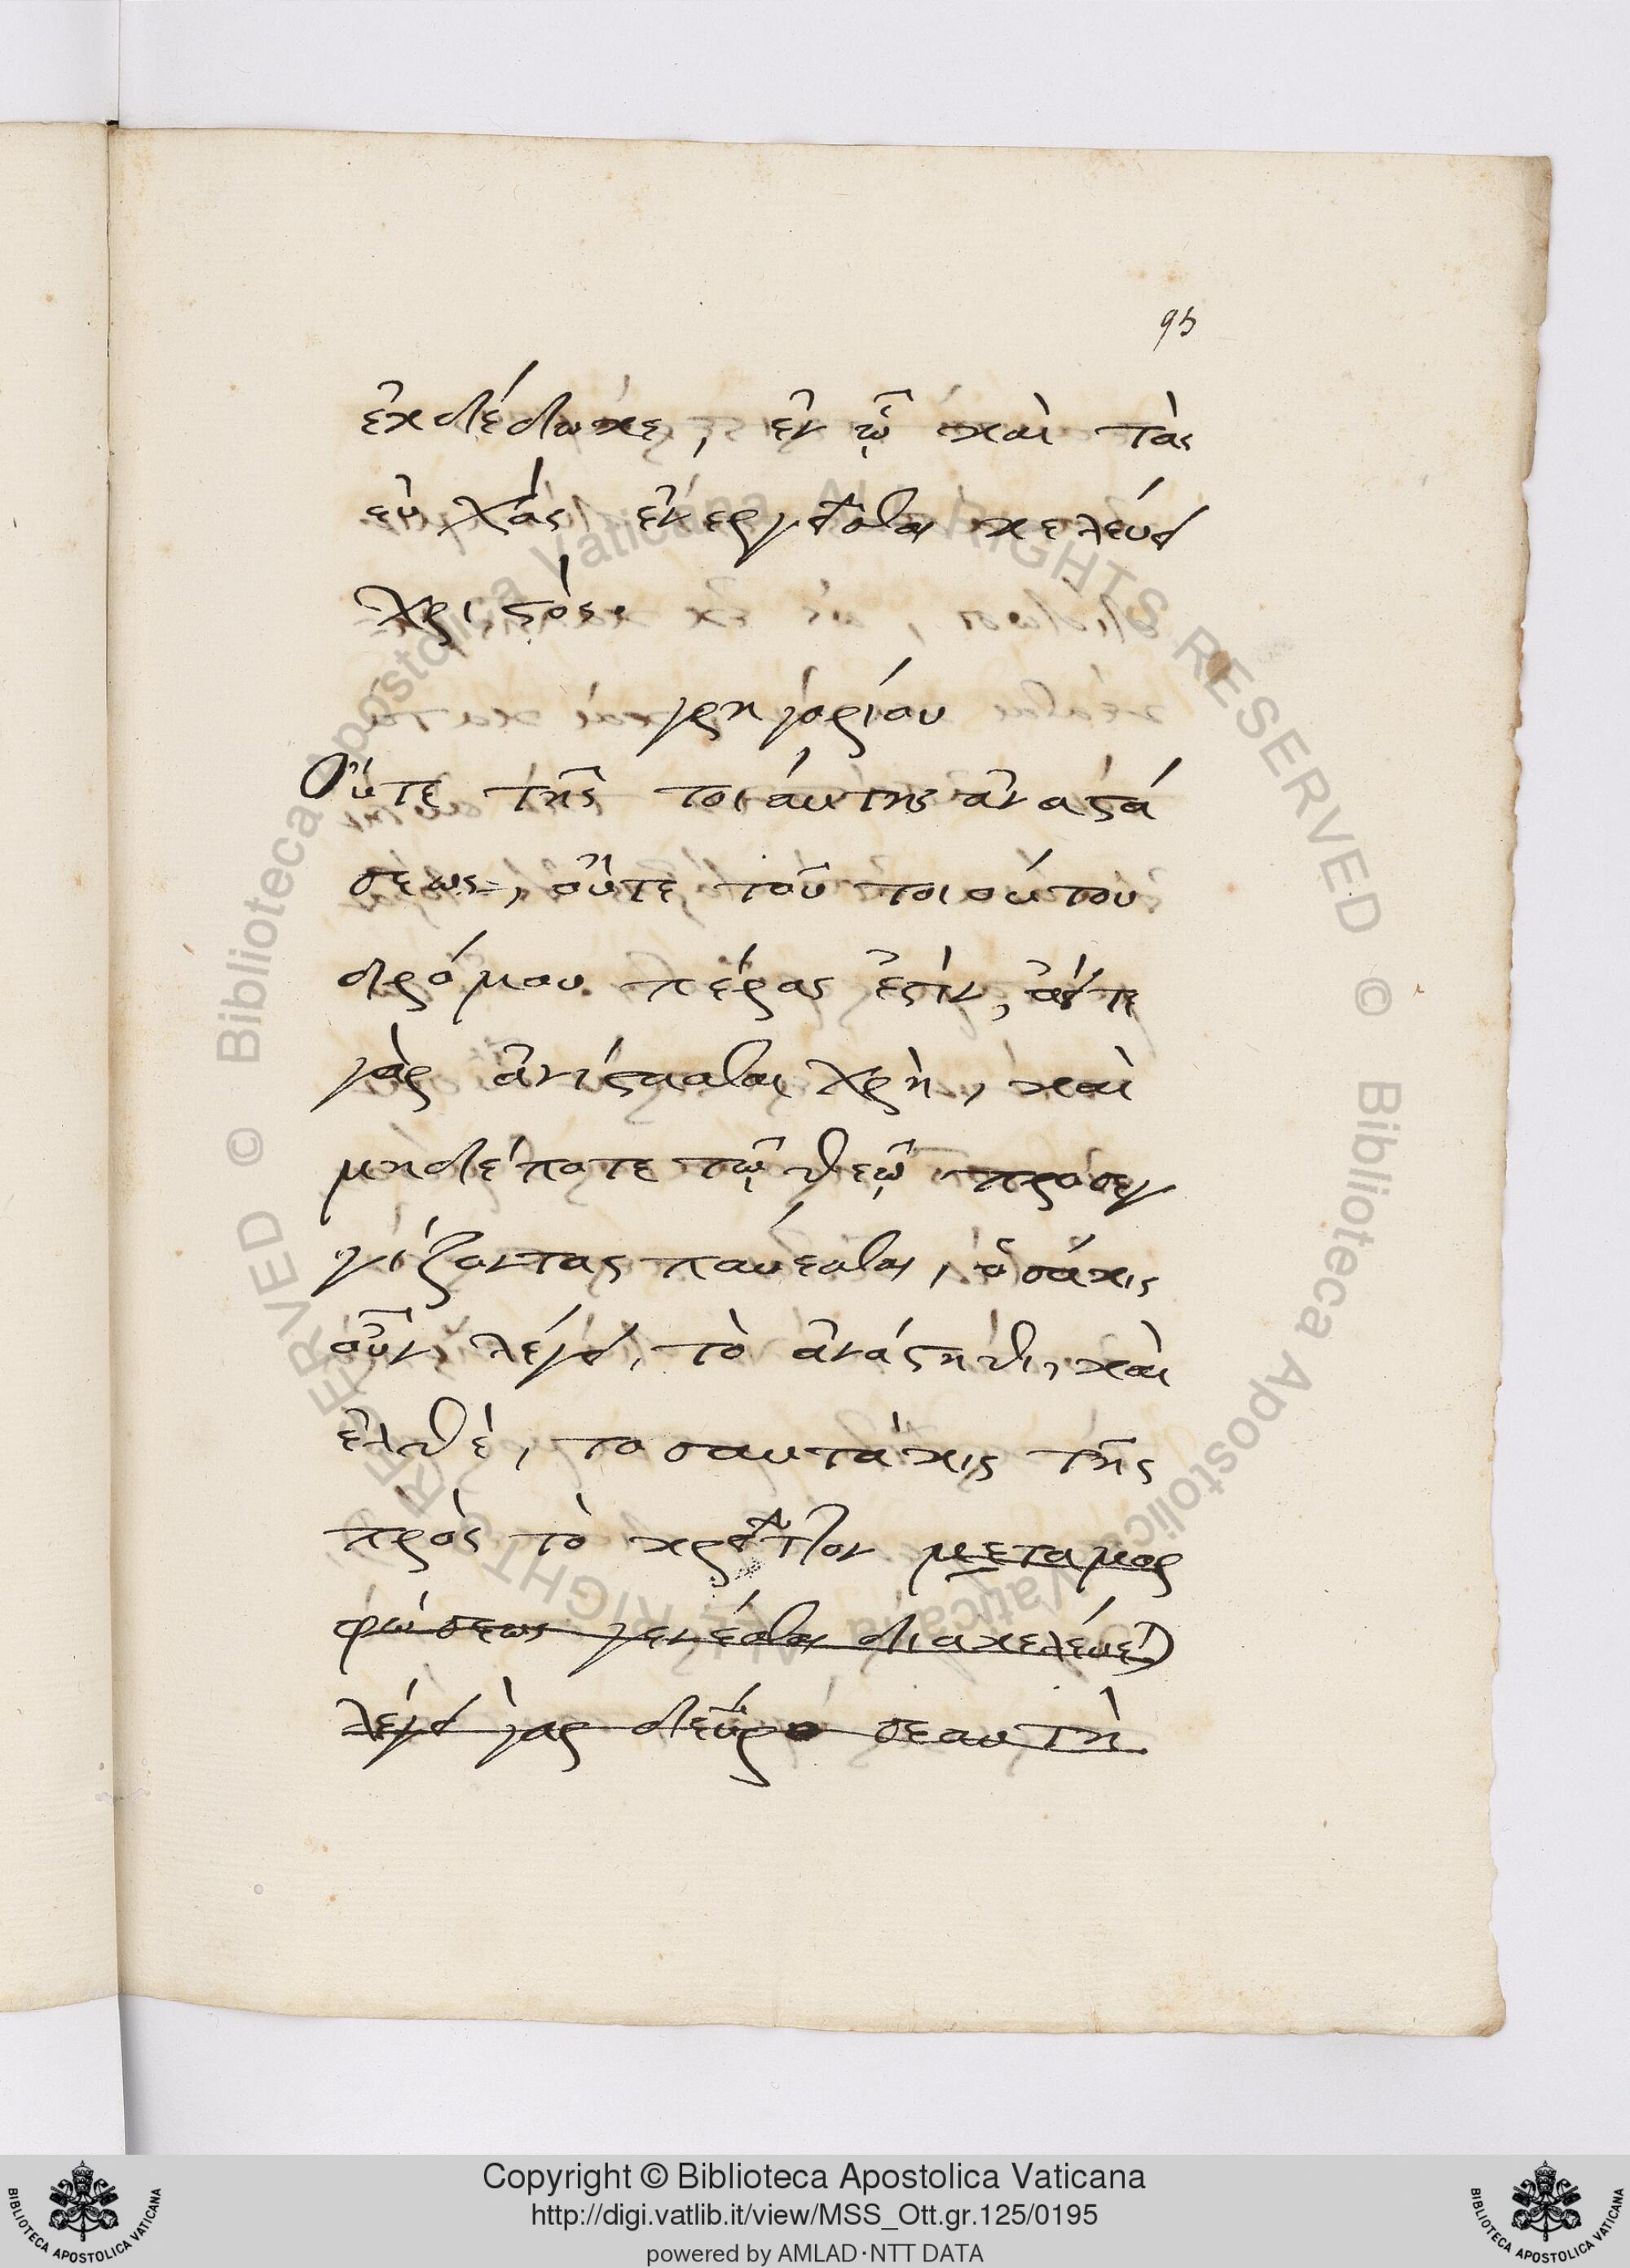 95
ἐκδέδωκε, ἐν ᾧ καὶ τὰς
εὐχὰς ἐνεργεῖσθαι κελεύει
χριστός.
γρηγορίου
Οὔτε τῆς τοιάυτης ἀναστά
σεως, οὔτε τοῦ τοιούτου
δρόμου πέρας ἐστὶν,
γὰρ ἀνίστασθαι χρὴ, καὶ
μηδέποτε τῷ θεῷ προσεγ
γίζοντας παύεσθαι, ὁσάκις
οὖν λέγει, τὸ ἀνάστηθι, καὶ
ἐλθὲ, τοσαυτάκις τῆς
πρὸς τὸ κρεῖττον μεταμορ
φώσεως γενέσθαι διακελέυεται
λέγει γὰρ δεῦρο σεαυτὴ
Copyright © Biblioteca Apostolica Vaticana
http://digi.vatlib.it/view/MSS_Ott.gr.125/0195
powered by AMLAD·NTT DATA
BIBLIOTECA APOSTOLICA VATICANA
BIBLIOTECA APOSTOLICA VATICANA
© Biblioteca Apostolica Vaticana ALL RIGHTS RESERVED
© Biblioteca Apostolica Vaticana ALL RIGHTS RESERVED